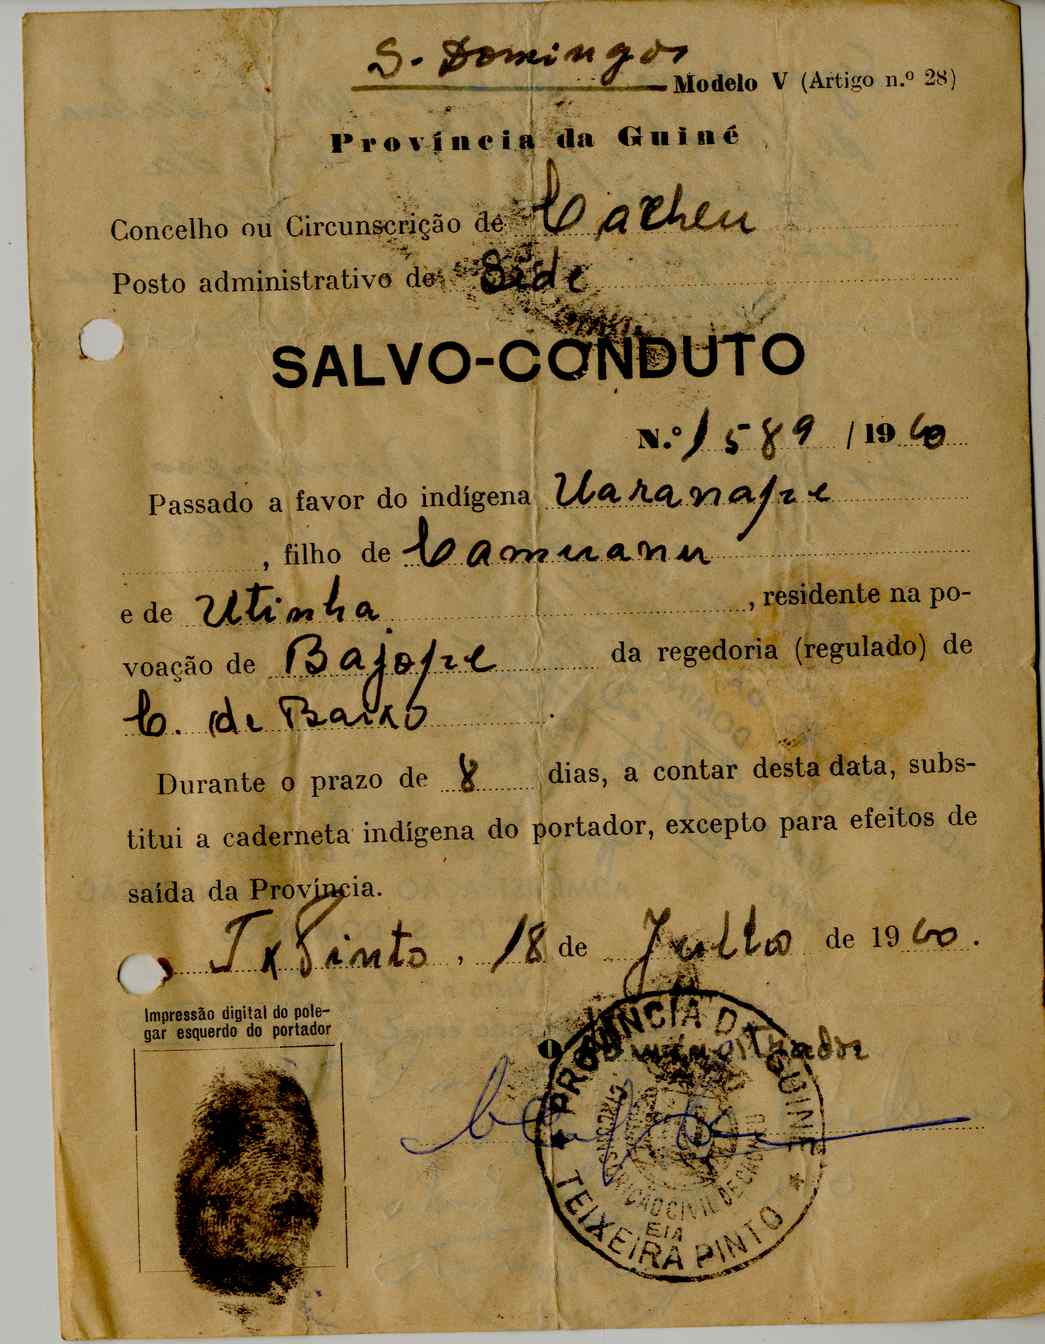 S. Domingos
Modelo V (Artigo n.º 28)
Província da Guiné
Concelho ou Circunscrição de Cacheu
Posto administrativo de Sede
SALVO-CONDUTO
N.º 1589 / 1960
Passado a favor do indígena Uaranape
, filho de Camuanu
e de Utinha, residente na po-
voação de Bajope da regedoria (regulado) de
C. de Baixo.
Durante o prazo de 8 dias, a contar desta data, subs-
titui a caderneta indígena do portador, excepto para efeitos de
saída da Província.
Tx Pinto, 18 de Julho de 1960.
Impressão digital do pole-
gar esquerdo do portador
O Administrador
PROVÍNCIA DA GUINÉ
CIRCUNSCRIÇÃO CIVIL DE CACHEU
TEIXEIRA PINTO